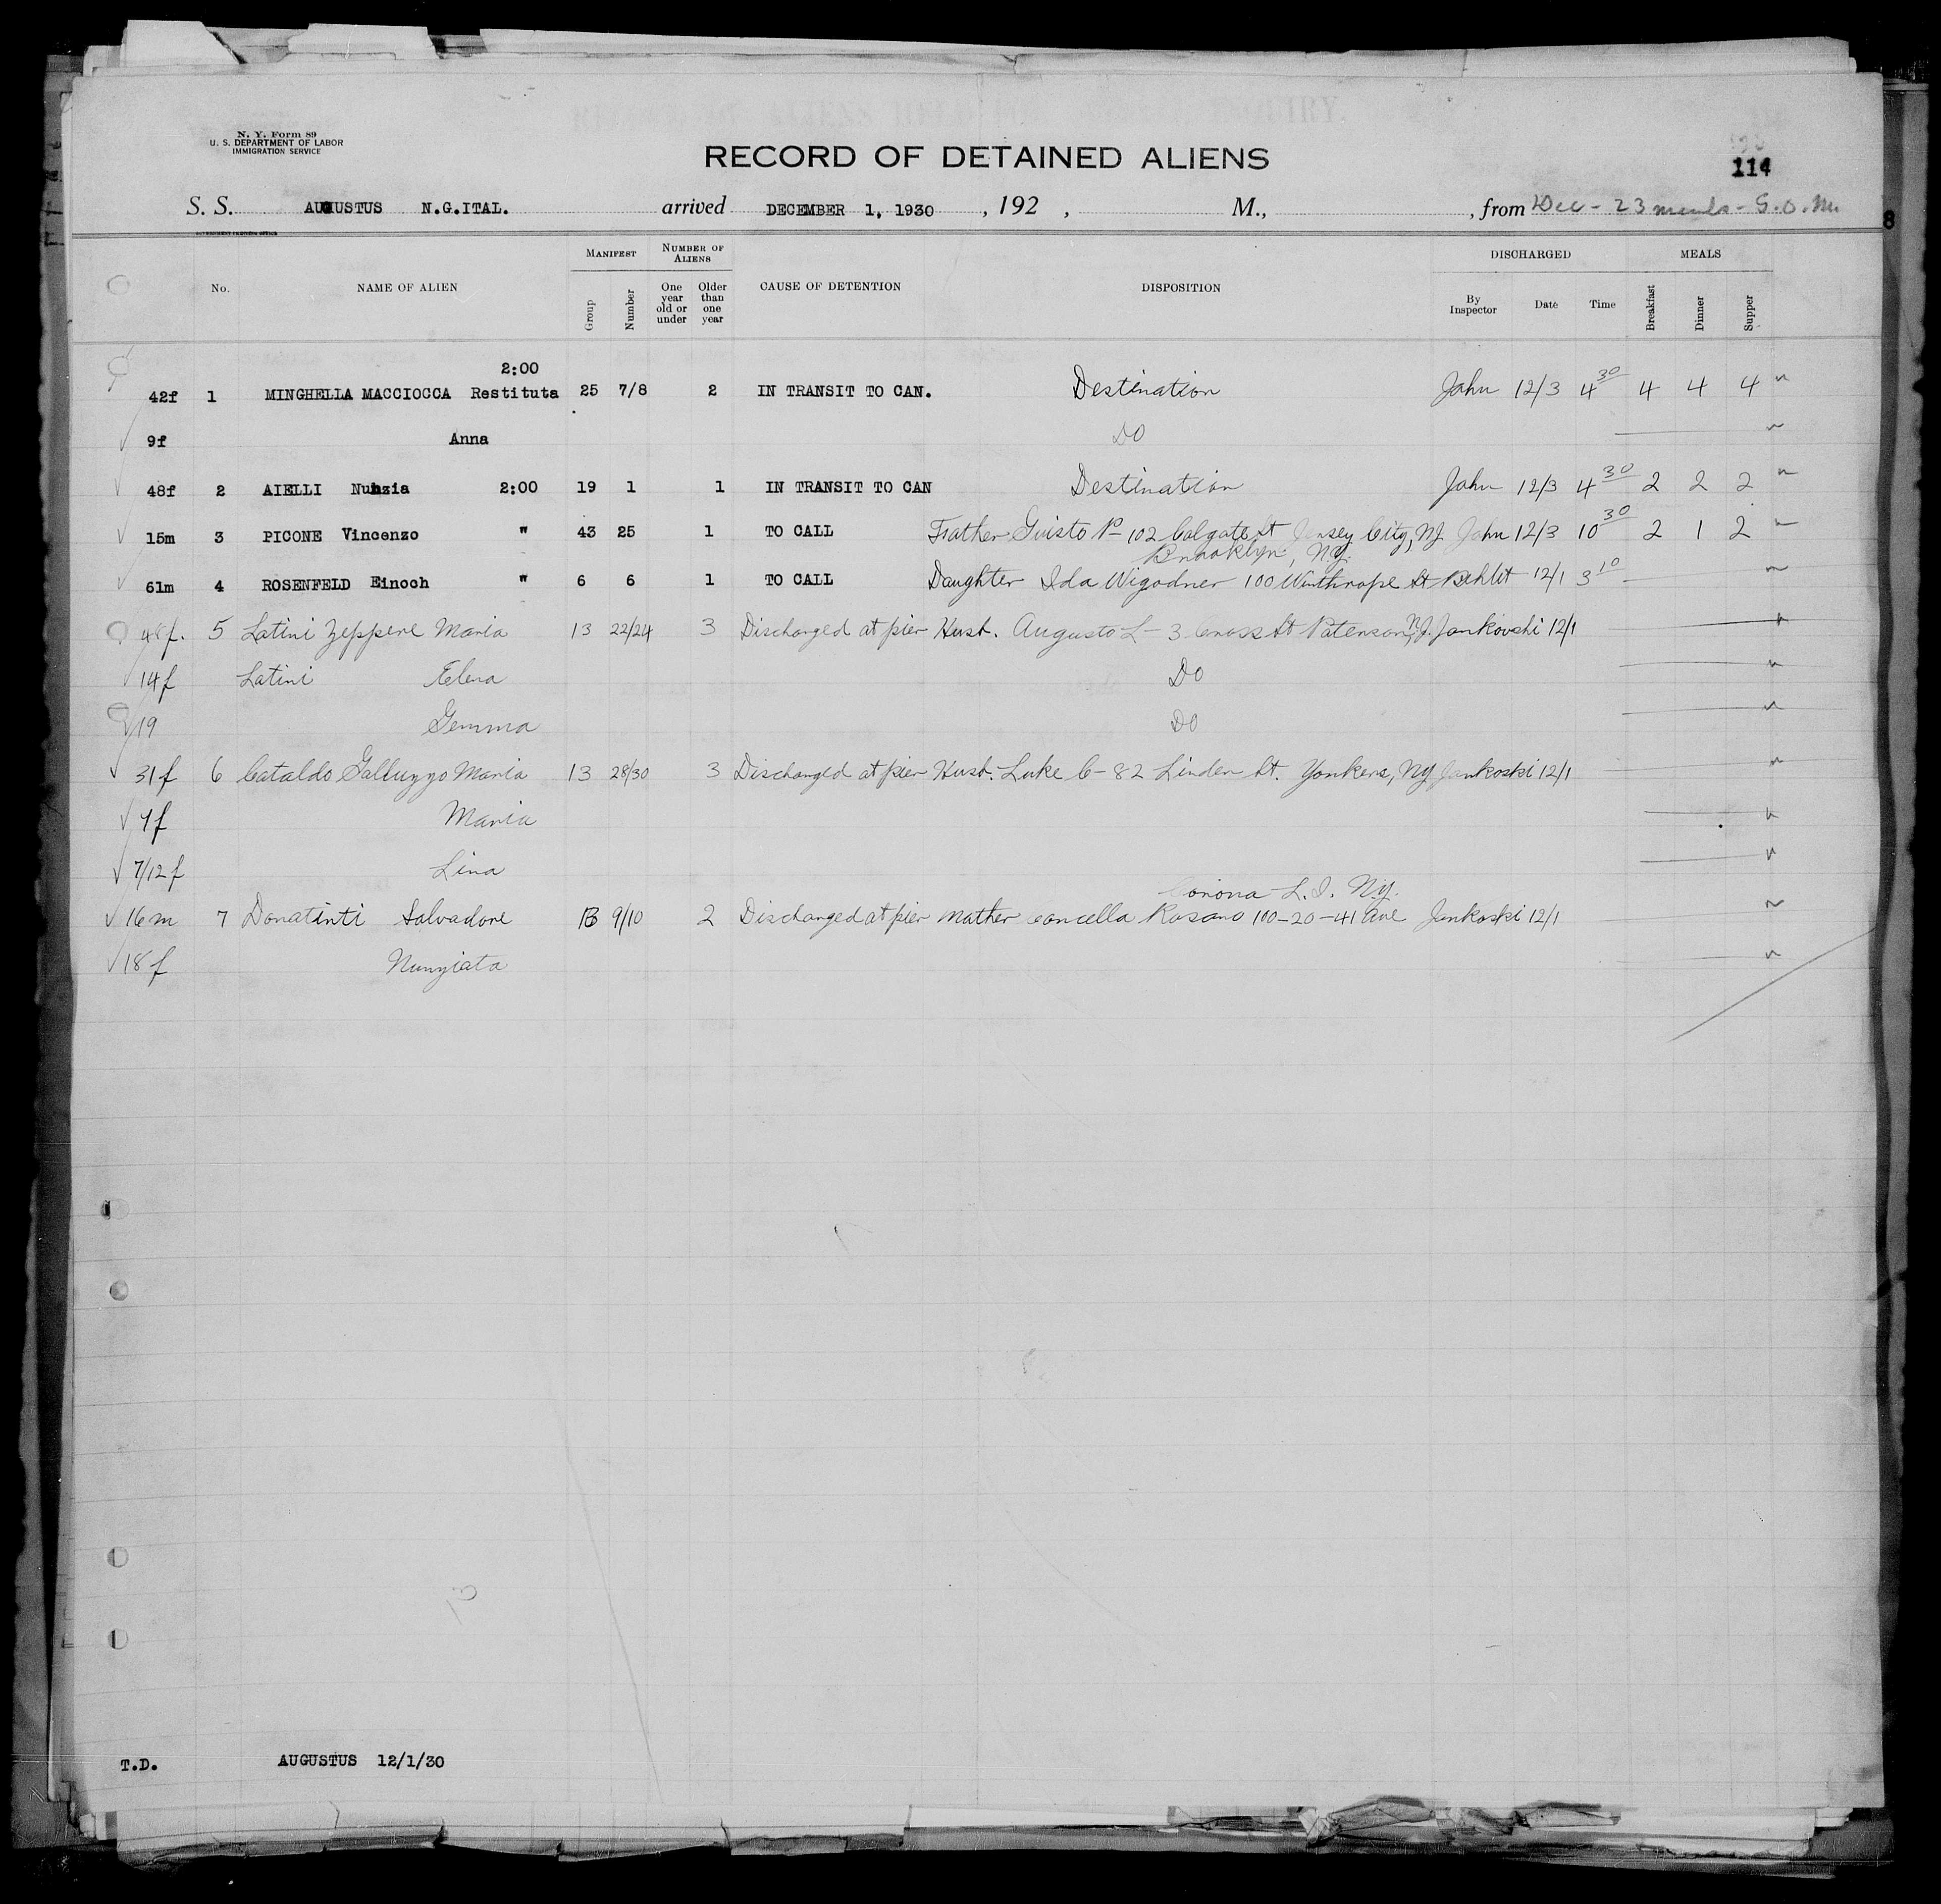 N. Y. Form 89
U. S. DEPARTMENT OF LABOR
IMMIGRATION SERVICE
RECORD OF DETAINED ALIENS
114
S. S. AUGUSTUS N.G.ITAL. arrived DECEMBER 1, 1930 , 192 , M., , from Dec - 23 meals - S.O.M.
GOVERNMENT PRINTING OFFICE
No. NAME OF ALIEN MANIFEST Group Number NUMBER OF ALIENS One year old or under Older than one year CAUSE OF DETENTION DISPOSITION DISCHARGED By Inspector Date Time MEALS Breakfast Dinner Supper
2:00
42f 1 MINGHELLA MACCIOCCA Restituta 25 7/8 2 IN TRANSIT TO CAN. Destination John 12/3 4 30 4 4 4
9f Anna DO
48f 2 AIELLI Nunzia 2:00 19 1 1 IN TRANSIT TO CAN Destination John 12/3 4 30 2 2 2
15m 3 PICONE Vincenzo " 43 25 1 TO CALL Father Guisto P- 102 Colgate St Jersey City, NJ. John 12/3 10 30 2 1 2
Brooklyn, NY.
61m 4 ROSENFELD Einoch " 6 6 1 TO CALL Daughter Ida Wigodner 100 Winthrope St 12/1 3 10
48f. 5 Latini Zeppere Maria 13 22/24 3 Discharged at pier Husb. Augusto L- 3 Cross St Paterson, N.J. Jankovski 12/1
14f Latini Elena DO
19 Gemma DO
31f 6 Cataldo Galluzzo Maria 13 28/30 3 Discharged at pier Husb. Luke C- 82 Linden St. Yonkers, NY Jankoski 12/1
Maria
7/12 f Lina
Corona L.I. NY.
16m 7 Donatinti Salvadore 13 9/10 2 Discharged at pier Mother Concella Rosano 100-20-41 Ave Jankoski 12/1
18f Nunziata
T.D. AUGUSTUS 12/1/30